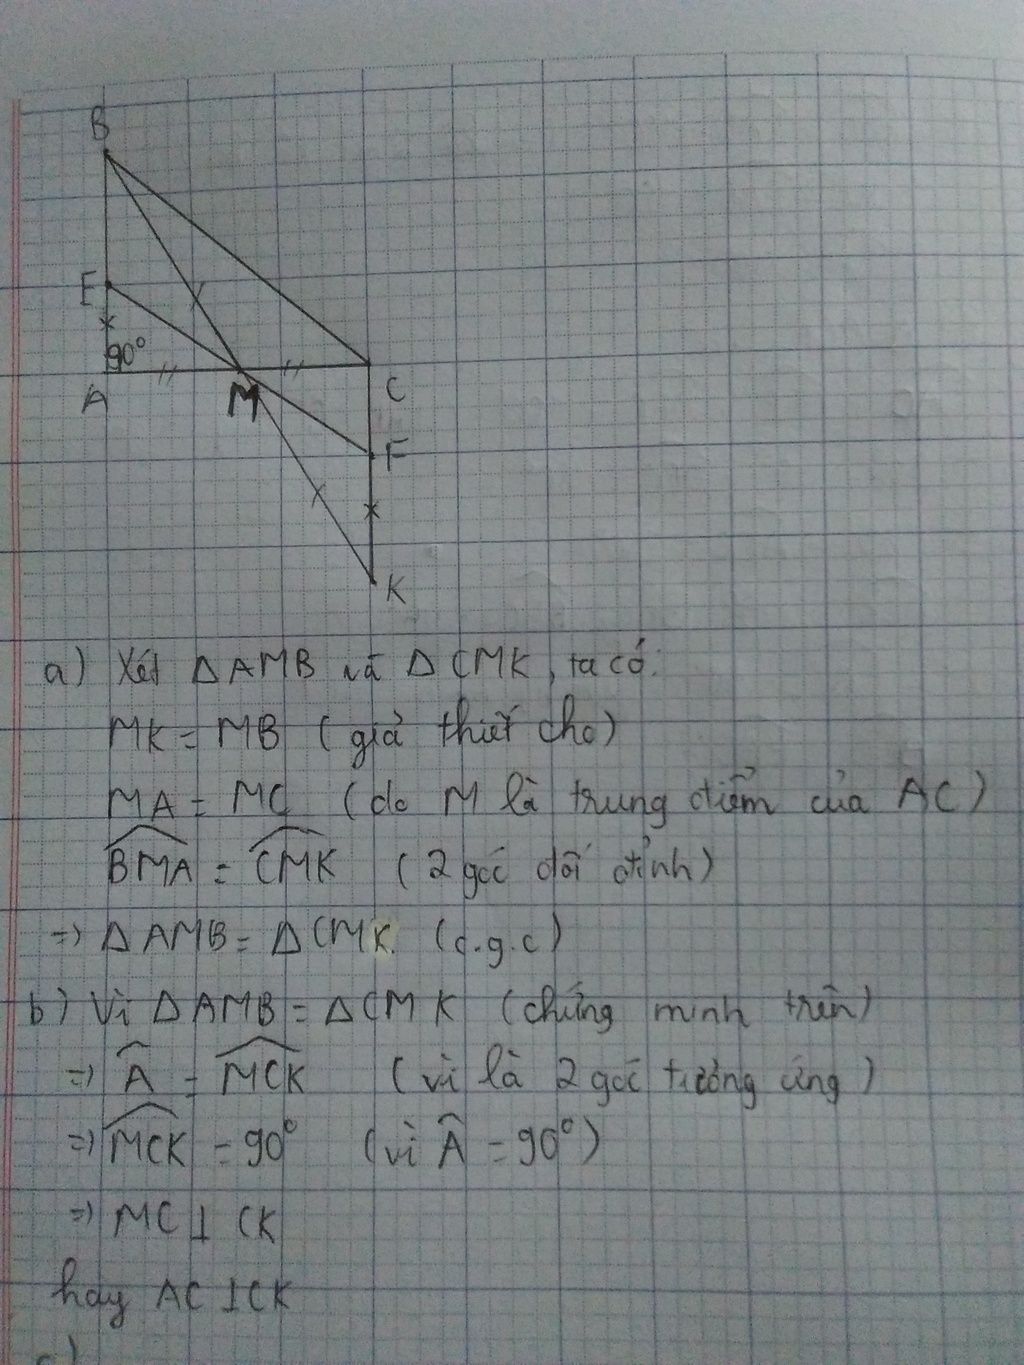 B
E
90°
A
M
C
F
K
a) Xét ΔAMB và ΔCMK, ta có:
MK = MB (giả thiết cho)
MA = MC (do M là trung điểm của AC)
\widehat{BMA} = \widehat{CMK} (2 góc đối đỉnh)
=> ΔAMB = ΔCMK. (c.g.c)
b) Vì ΔAMB = ΔCMK (chứng minh trên)
=> \widehat{A} = \widehat{MCK} (vì là 2 góc tương ứng)
=> \widehat{MCK} = 90° (vì \widehat{A} = 90°)
=> MC ⊥ CK
hay AC ⊥ CK
c)